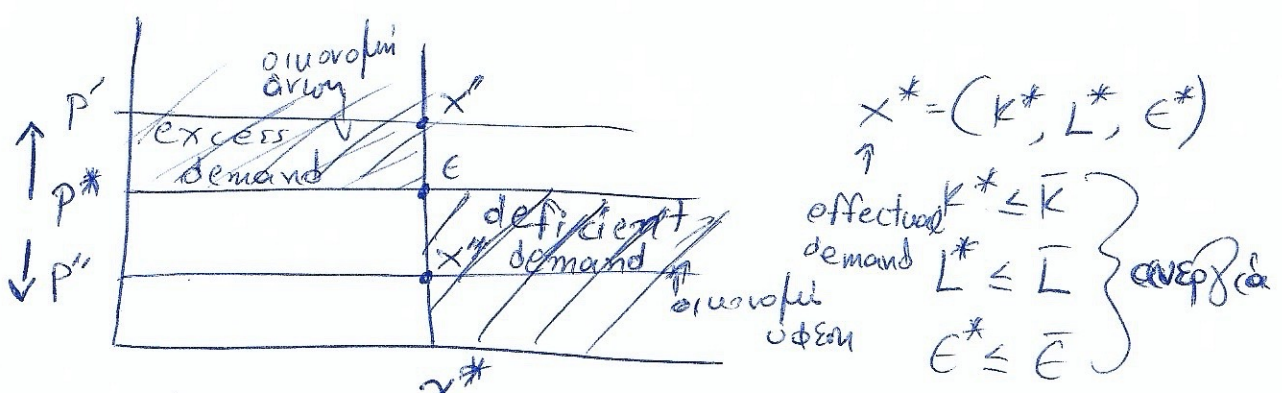 οικονομική
άνιση
P'
X"
excess
demand
ε
P*
deficient
demand
X"
P"
οικονομική
ύφεση
x*
X* = (K*, L*, ε*)
↑
effectual
demand
K* ≤ K̄
L* ≤ L̄
ε* ≤ ε̄
ανεργία